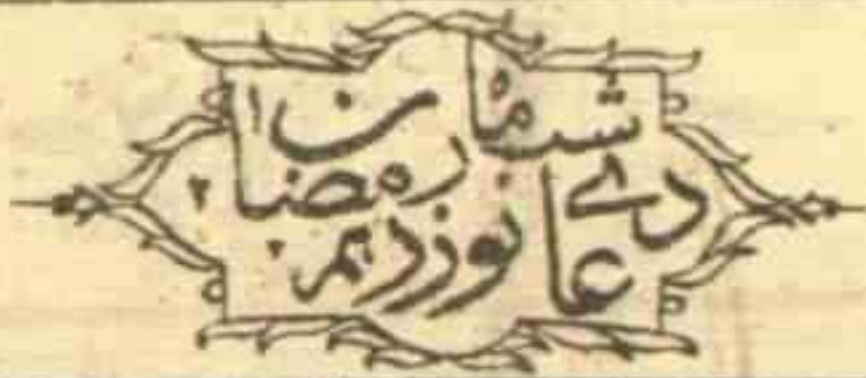 دعای شب نوزدهم ماه رمضان